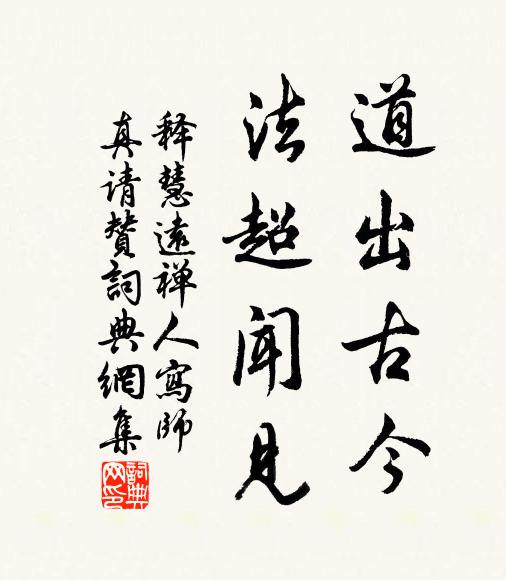 道出古今
法超聞見
释慧遠禅人寫師
真请赞詞典網集
詞典网印